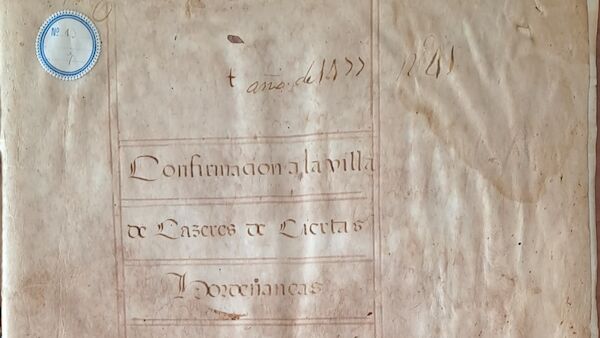 Nº 13
7
† año de 1477 nº 41
Confirmacion a la villa
de Cazeres de Ciertas
Hordeñancas